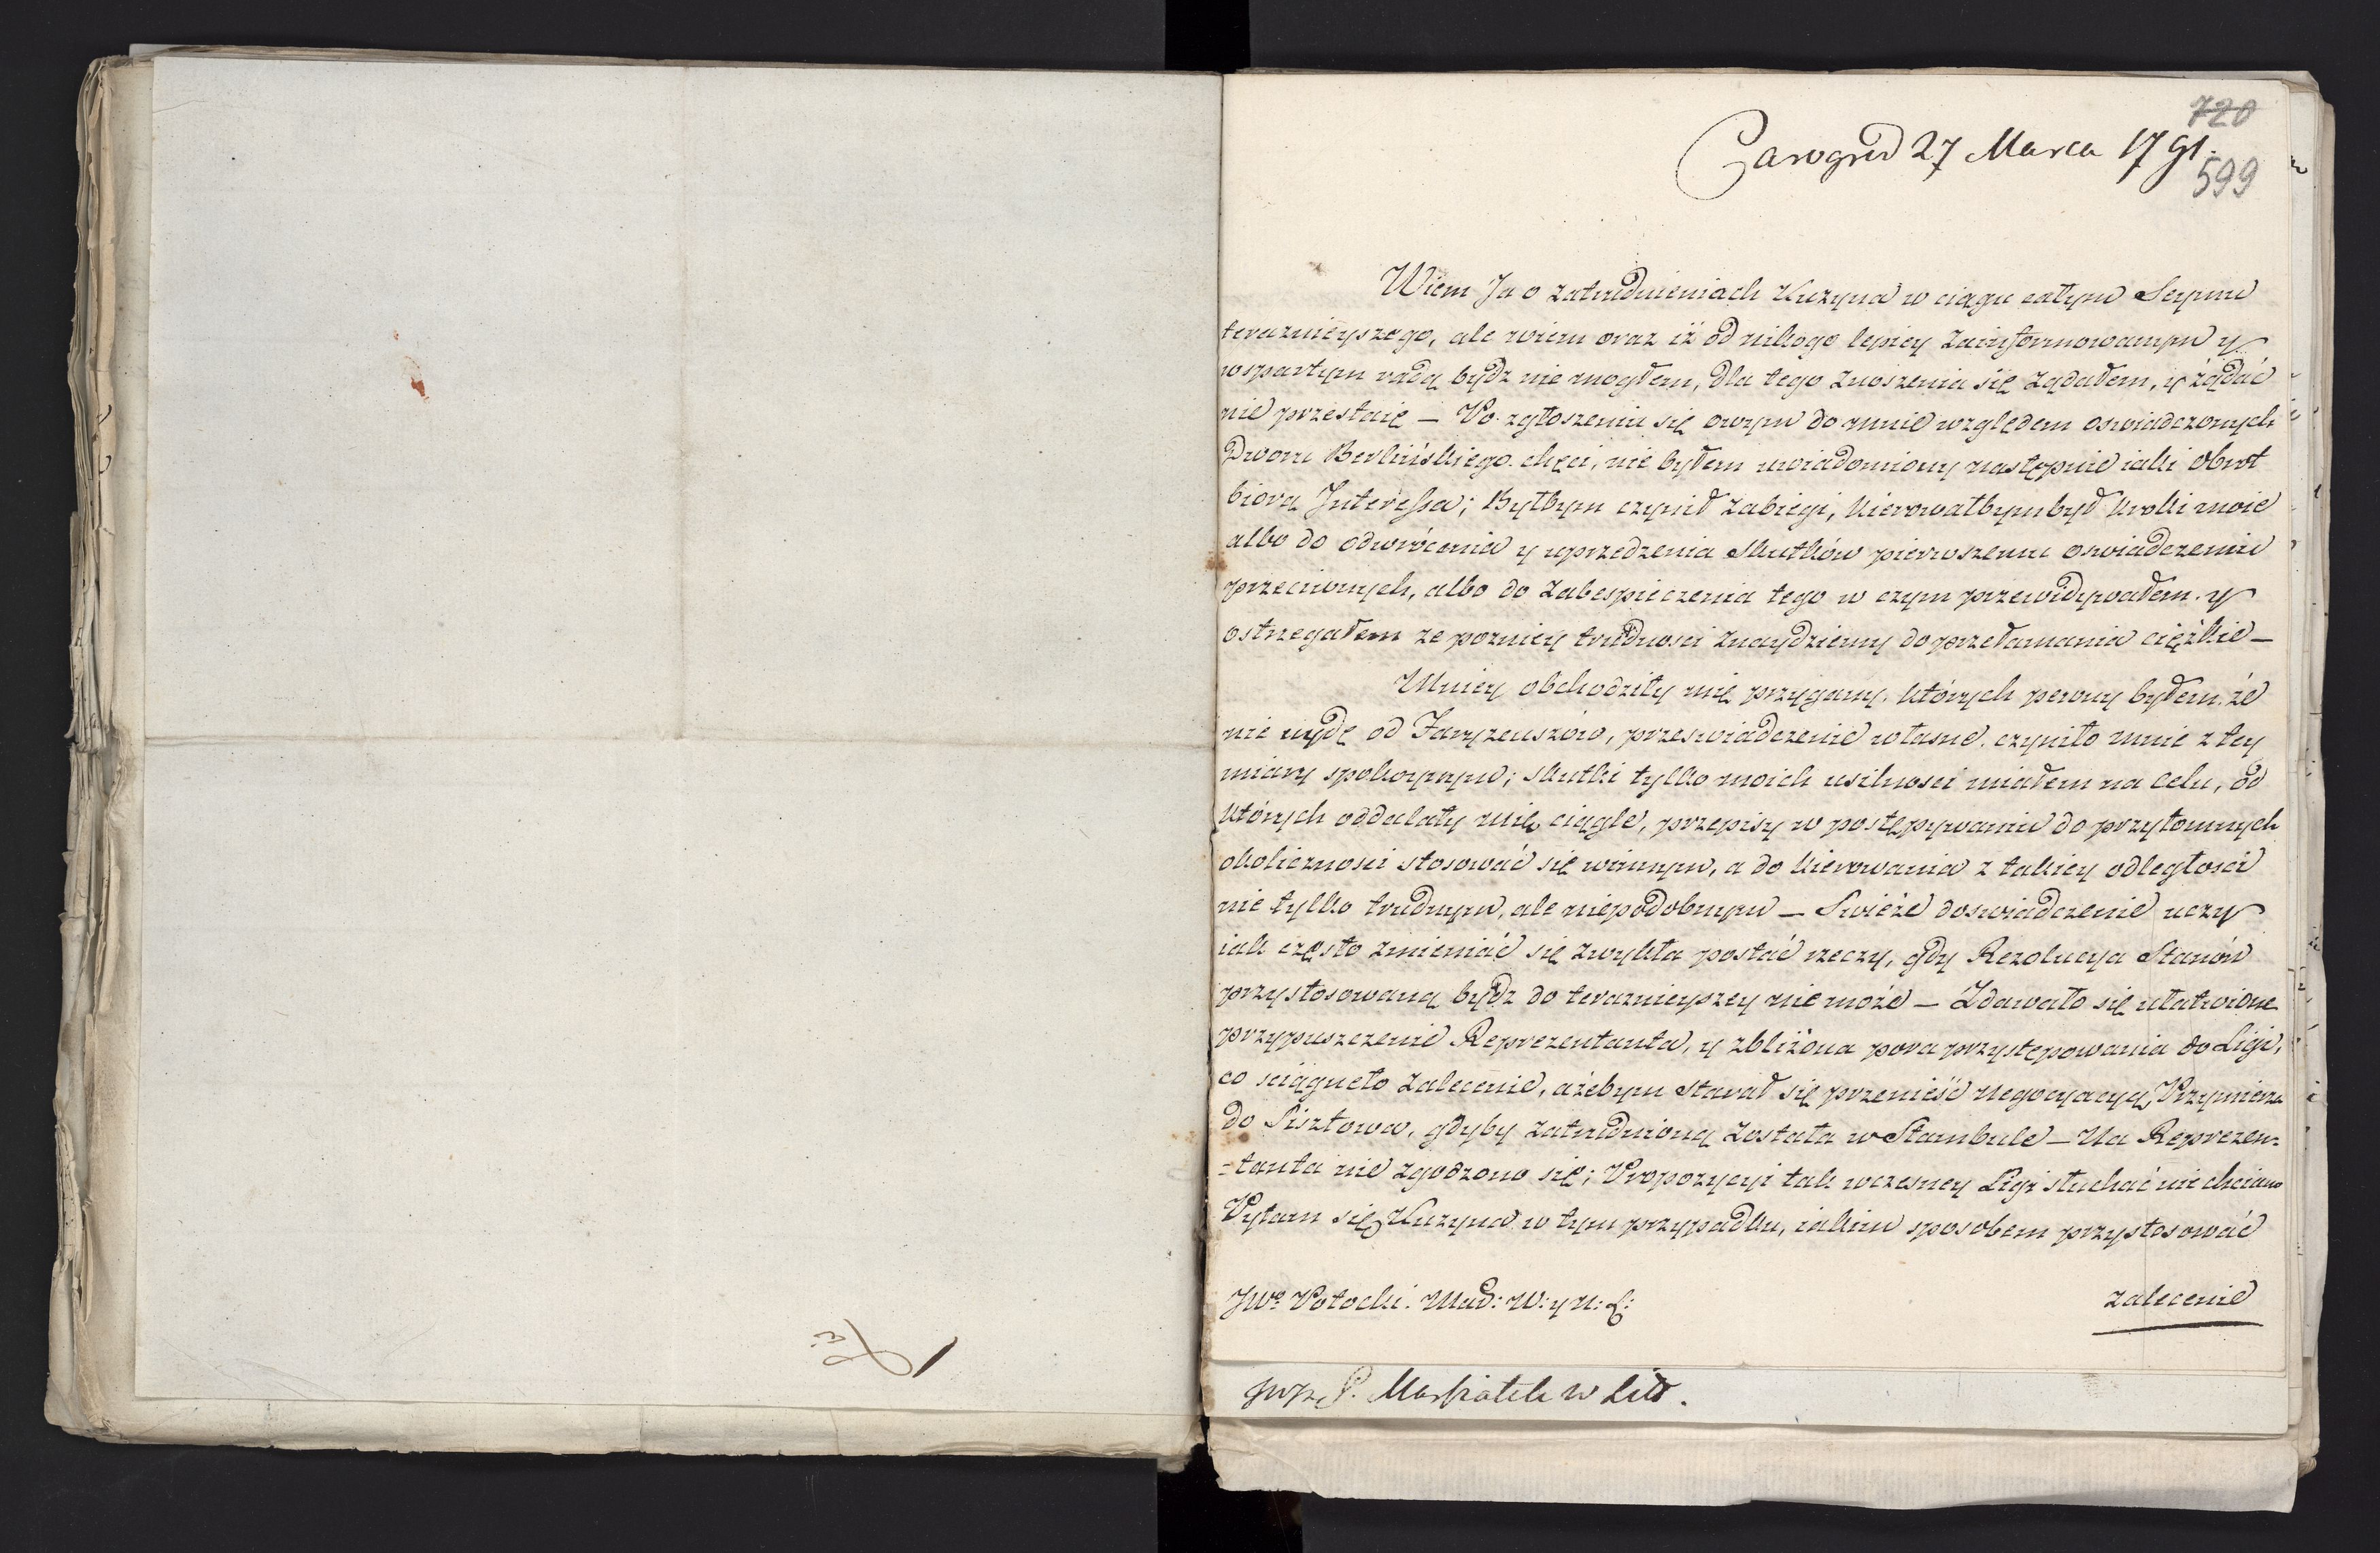 720
Carogrud 27 Marca 1791.
599
Wiem Ja o zatrudnieniach Kuzyna w ciągu całym Seymu
teraznieyszego, ale wiem oraz iż od nikogo lepiey zainformowanym y
wspartym radą bydz nie mogłem, dla tego znoszenia się żądałem, y żądać
nie przestaię — Po zgłoszeniu się owym do mnie względem oswiadczonych
Dworu Berlińskiego chęci, nie byłem uwiadomiony następnie iaki obrot
biorą Interessa; Byłbym czynił zabiegi, kierowałbym był kroki moie
albo do odwrócenia y uprzedzenia skutków pierwszemu oswiadczeniu
przeciwnych, albo do zabespieczenia tego w czym przewidywałem y
ostrzegałem ze pozniey trudnosci znaydziemy do przełamania cięzkie —
Mniey obchodziły mię przygany, których pewny byłem, że
nie uydę od Faryzeuszów, przeswiadczenie własne czyniło mnie z tey
miary spokoynym; skutki tylko moich usilnosci miałem na celu, od
których oddalały mię ciągle, przepisy w postępywaniu do przytomnych
okolicznosci stosować się winnym, a do kierowania z takiey odległosci
nie tylko trudnym, ale niepodobnym — Swieże doswiadczenie uczy
iak często zmieniać się zwykła postać rzeczy, gdy Rezolucya Stanów
przystosowaną bydz do teraznieyszey nie może — Zdawało się ułatwione
przypuszczenie Reprezentanta, y zbliżona pora przystępowania do Ligi,
co sciągneło zalecenie, ażebym starał się przenieść negocyacyą Przymierza
do Sisztowa, gdyby zatrudnioną została w Stambule — Na Reprezen-
-tanta nie zgodzono się; Propozycyi tak wczesney Ligi słuchać nie chciano
Pytam się Kuzyna w tym przypadku, iakim sposobem przystosować
zalecenie
JWo Potocki. Mad: W: y N: L:
JWP. P. Marszałek w Lit.